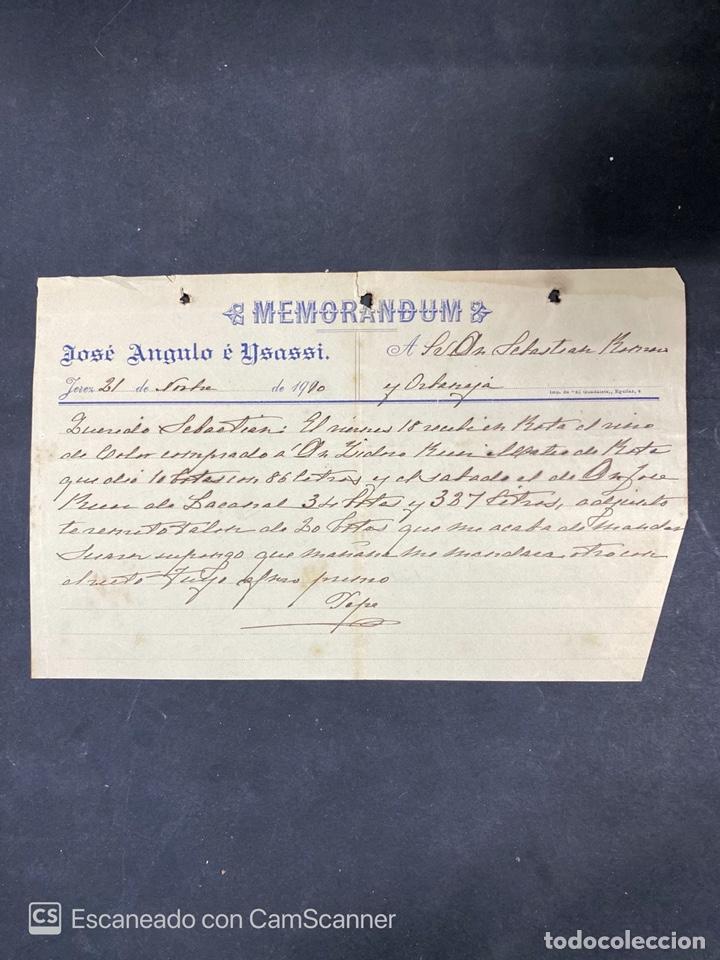 MEMORANDUM
José Angulo é Ysassi.
A Sr Dn Sebastian Romero
Jerez 21 de Novbre de 1910
y Orbaneja
Imp. de "El Guadalete,,
Querido Sebastian: El viernes 18 recibi en Rota el vino
de Color comprado a Dn Isidoro Ruiz de Rota
que dió 10 botas con 86 litros y el sabado el de Dn Jose
Ruiz de 34 botas y 327 litros, adjunto
te remito talon de 20 botas que me acaba de mandar
Suarez supongo que mañana me mandara otro con
el resto Tuyo afmo primo
Pepe
CS Escaneado con CamScanner
todocoleccion